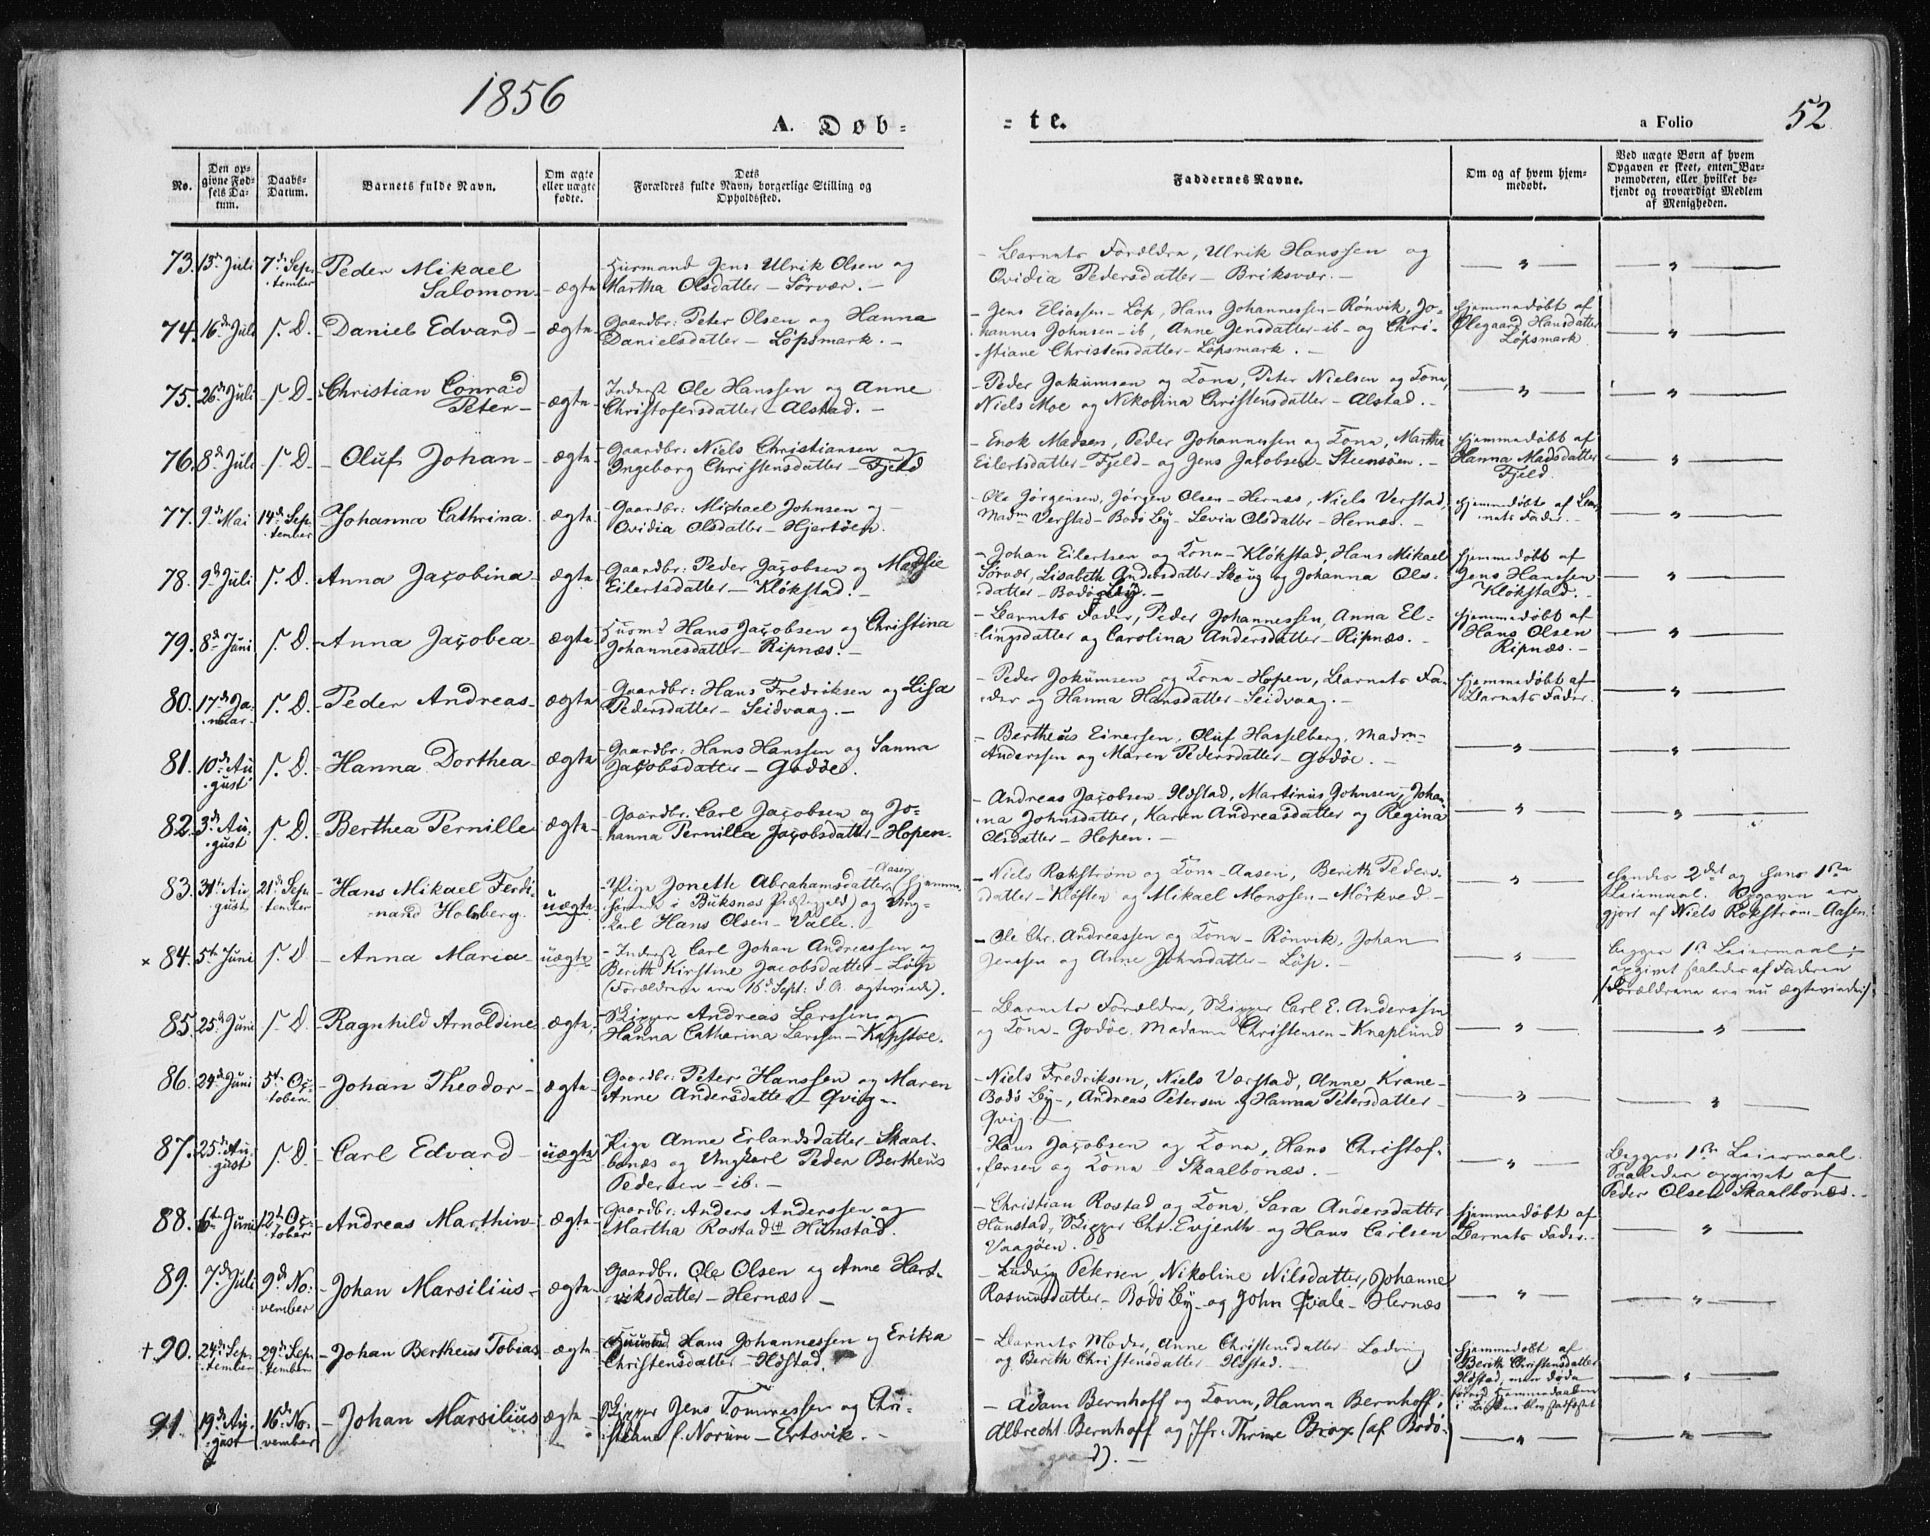 1856
A. Døb=
= te.
a Folio
52
No.
Den op-
givne Fød-
sels Da-
tum.
Daabs-
Datum.
Barnets fulde Navn.
Om ægte
eller uægte
fødte.
Dets
Forældres fulde Navn, borgerlige Stilling og
Opholdssted.
Faddernes Navne.
Om og af hvem hjem-
medøbt.
Ved uægte Børn af hvem
Opgaven er skeet, enten Bar-
nemoderen, eller hvilket be-
kjendt og troværdigt Medlem
af Menigheden.
73. 13de Juli 7de Sep-
tember
Peder Mikael
Salomon - ægte
Huusmand Jens Ulrik Olsen og
Martha Olsdatter - Sörvær. -
Barnets Forældre, Ulrik Hanssen og
Ovidia Pedersdatter - Briksvær. -
74. 16de Juli S. D. Daniel Edvard - ægte
Gaardbr: Peter Olsen og Hanna
Danielsdatter - Löpsmark. -
Jens Eliassen - Löp, Hans Johannessen - Rönvik, Jo-
hannes Johnsen - ib, Anne Jensdatter - ib - og Chri-
stiane Christensdatter - Löpsmark. -
Hjemmedøbt af
Olegaard Hansdatter
Löpsmark
75. 26de Juli S. D. Christian Conrad
Peter - ægte
Inderst Ole Hanssen og Anne
Christofersdatter - Alstad. -
Peder Jakumsen og Kone, Peter Nielsen og Kone,
Niels Moe og Nikolina Christensdatter - Alstad. -
76. 8de Juli S. D. Oluf Johan - ægte
Gaardbr: Niels Christiansen og
Ingeborg Christensdatter - Fjeld
Enok Madsen, Peder Johannessen og Kone, Martha
Eilertsdatter - Fjeld - og Jens Jacobsen - Steensöen. -
Hjemmedøbt af
Hanna Madsdatter
Fjeld.
77. 9de Mai 14de Sep-
tember
Johanna Cathrina. ægte
Gaardbr: Michael Johnsen og
Ovidia Olsdatter - Hjertöen.
Ole Jörgensen, Jörgen Olsen - Hernæs, Niels Verstad,
Madm Verstad - Bodö By - Levia Olsdatter - Hernæs. -
Hjemmedøbt af Bar-
nets Fader. -
78. 9de Juli S. D. Anna Jacobina - ægte
Gaardbr: Peder Jacobsen og Madsie
Eilertsdatter - Klökstad. -
Johan Eilertsen og Kone - Klökstad, Hans Mikael
Sörvær, Lisabeth Andersdatter - Skoug og Johanna Ols-
datter - Bodö By. -
Hjemmedøbt af
Jens Hanssen
Klökstad. -
79. 8de Juni S. D. Anna Jacobea - ægte
Husmd Hans Jacobsen og Christina
Johannesdatter - Ripnæs. -
Barnets Fader, Peder Johannessen, Anna El-
lingsdatter og Carolina Andersdatter - Ripnæs. -
Hjemmedøbt af
Hans Olsen
Ripnæs. -
80. 17de Ja-
nuar S. D. Peder Andreas - ægte
Gaardbr: Hans Fredriksen og Lisa
Pedersdatter - Seidvaag. -
Peder Jokumsen og Kone - Hopen, Barnets Fa-
der og Hanna Hansdatter - Seidvaag. -
Hjemmedøbt af
Barnets Fader.
81. 10de Au-
gust S. D. Hanna Dorthea - ægte
Gaardbr: Hans Hanssen og Sanna
Jacobsdatter - Godöe.
Bertheus Einersen, Oluf Hasselberg, Madm
Anderssen og Maren Pedersdatter - Godöe. -
82. 3de Au-
gust S. D. Berthea Pernille ægte
Gaardbr: Carl Jacobsen og Jo-
hanna Pernilla Jacobsdatter - Hopen.
Andreas Jacobsen - Höstad, Martinus Johnsen, Johan-
na Johnsdatter, Karen Andreasdatter og Regina
Olsdatter - Hopen. -
83. 31te Au-
gust 21de Sep-
tember
Hans Mikael Ferdi-
nand Holsberg. uægte
Pige Jonette Abrahamsdatter Aasen, hjemme-
hörende i Buksnæs Præstegjeld, og Ung-
karl Hans Olsen - Valle. -
Niels Rokström og Kone - Aasen, Berith Peders-
datter - Klöften og Mikael Monssen - Mörkved -
Hendes 2det og Hans 1ste
Leiermaal. Opgaven er
gjort af Niels Rokström - Aasen.
× 84. 5te Juni S. D. Anna Maria - uægte
Inderst Carl Johan Andreassen og
Berith Kirstine Jacobsdatter - Löp
(Forældrene ere 16de Sept: d. A. ægteviede).
Ole Chr. Andreassen og Kone - Rönvik, Johan
Jenssen og Anne Johnsdatter - Löp. -
Begges 1ste Leiermaal;
opgivet saaledes af Faderen
(Forældrene ere nu ægteviede).
85. 25de Juni S. D. Ragnhild Arnoldine ægte
Skipper Andreas Larssen og
Hanna Catharina Larssen - Kapstoe.
Barnets Forældre, Skipper Carl E. Anderssen
og Kone - Godöe. Madame Christensen - Knaplund
86. 24de Juni 5te Oc-
tober. Johan Theodor - ægte
Gaardbr: Peter Hanssen og Maren
Anne Andersdatter - Qvig -
Niels Fredriksen, Niels Værstad, Anne Krane -
Bodö By -, Andreas Petersen og Hanna Petersdatter -
Qvig
87. 25de Au-
gust S. D. Carl Edvard - uægte
Pige Anne Erlandsdatter - Skaal-
bonæs og Ungkarl Peder Bertheus
Pedersen - ib. -
Hans Jacobsen og Kone, Hans Christof-
fersen og Kone - Skaalbonæs. -
Begges 1ste Leiermaal.
Saaledes opgivet af
Peder Olsen Skaalbonæs. -
88. 6te Juni 12te Oc-
tober Andreas Marthin - ægte
Gaardbr: Anders Anderssen og
Martha Rostad - Hunstad.
Christian Rostad og Kone, Sara Andersdatter
Hunstad, Skipper Chr. Evjenth og Hans Carlsen
Vaagöen. -
Hjemmedøbt af
Barnets Fader. -
89. 7de Juli 9de No-
vember Johan Marsilius - ægte
Gaardbr. Ole Olsen og Anne Hart-
viksdatter - Hernæs. -
Ludvig Petersen, Nikoline Nilsdatter, Johanne
Rasmusdatter - Bodö By - og John Qvale - Hernæs
+ 90. 24de Sep-
tember 29de Sep-
tember Johan Bertheus Tobias ægte
Hans Johannessen og Erika
Christensdatter - Höstad.
Barnets Moder, Anne Christensdatter - Loding
og Berith Christensdatter - Höstad. -
Hjemmedøbt af
Berith Christensdatter
Höstad, men døde
forend Hjemmedaaben
i Kirken blev stadfæstet
91. 19de Au-
gust 16de No-
vember Johan Marsilius ægte
Skipper Jens Tommessen og Chri-
stiane f. Norum - Ertsvik. -
Adam Bernhoff og Kone, Hanna Bernhoff,
Albrecht Bernhoff og Jfr. Thrine Brox (af Bodö-
gaard). -